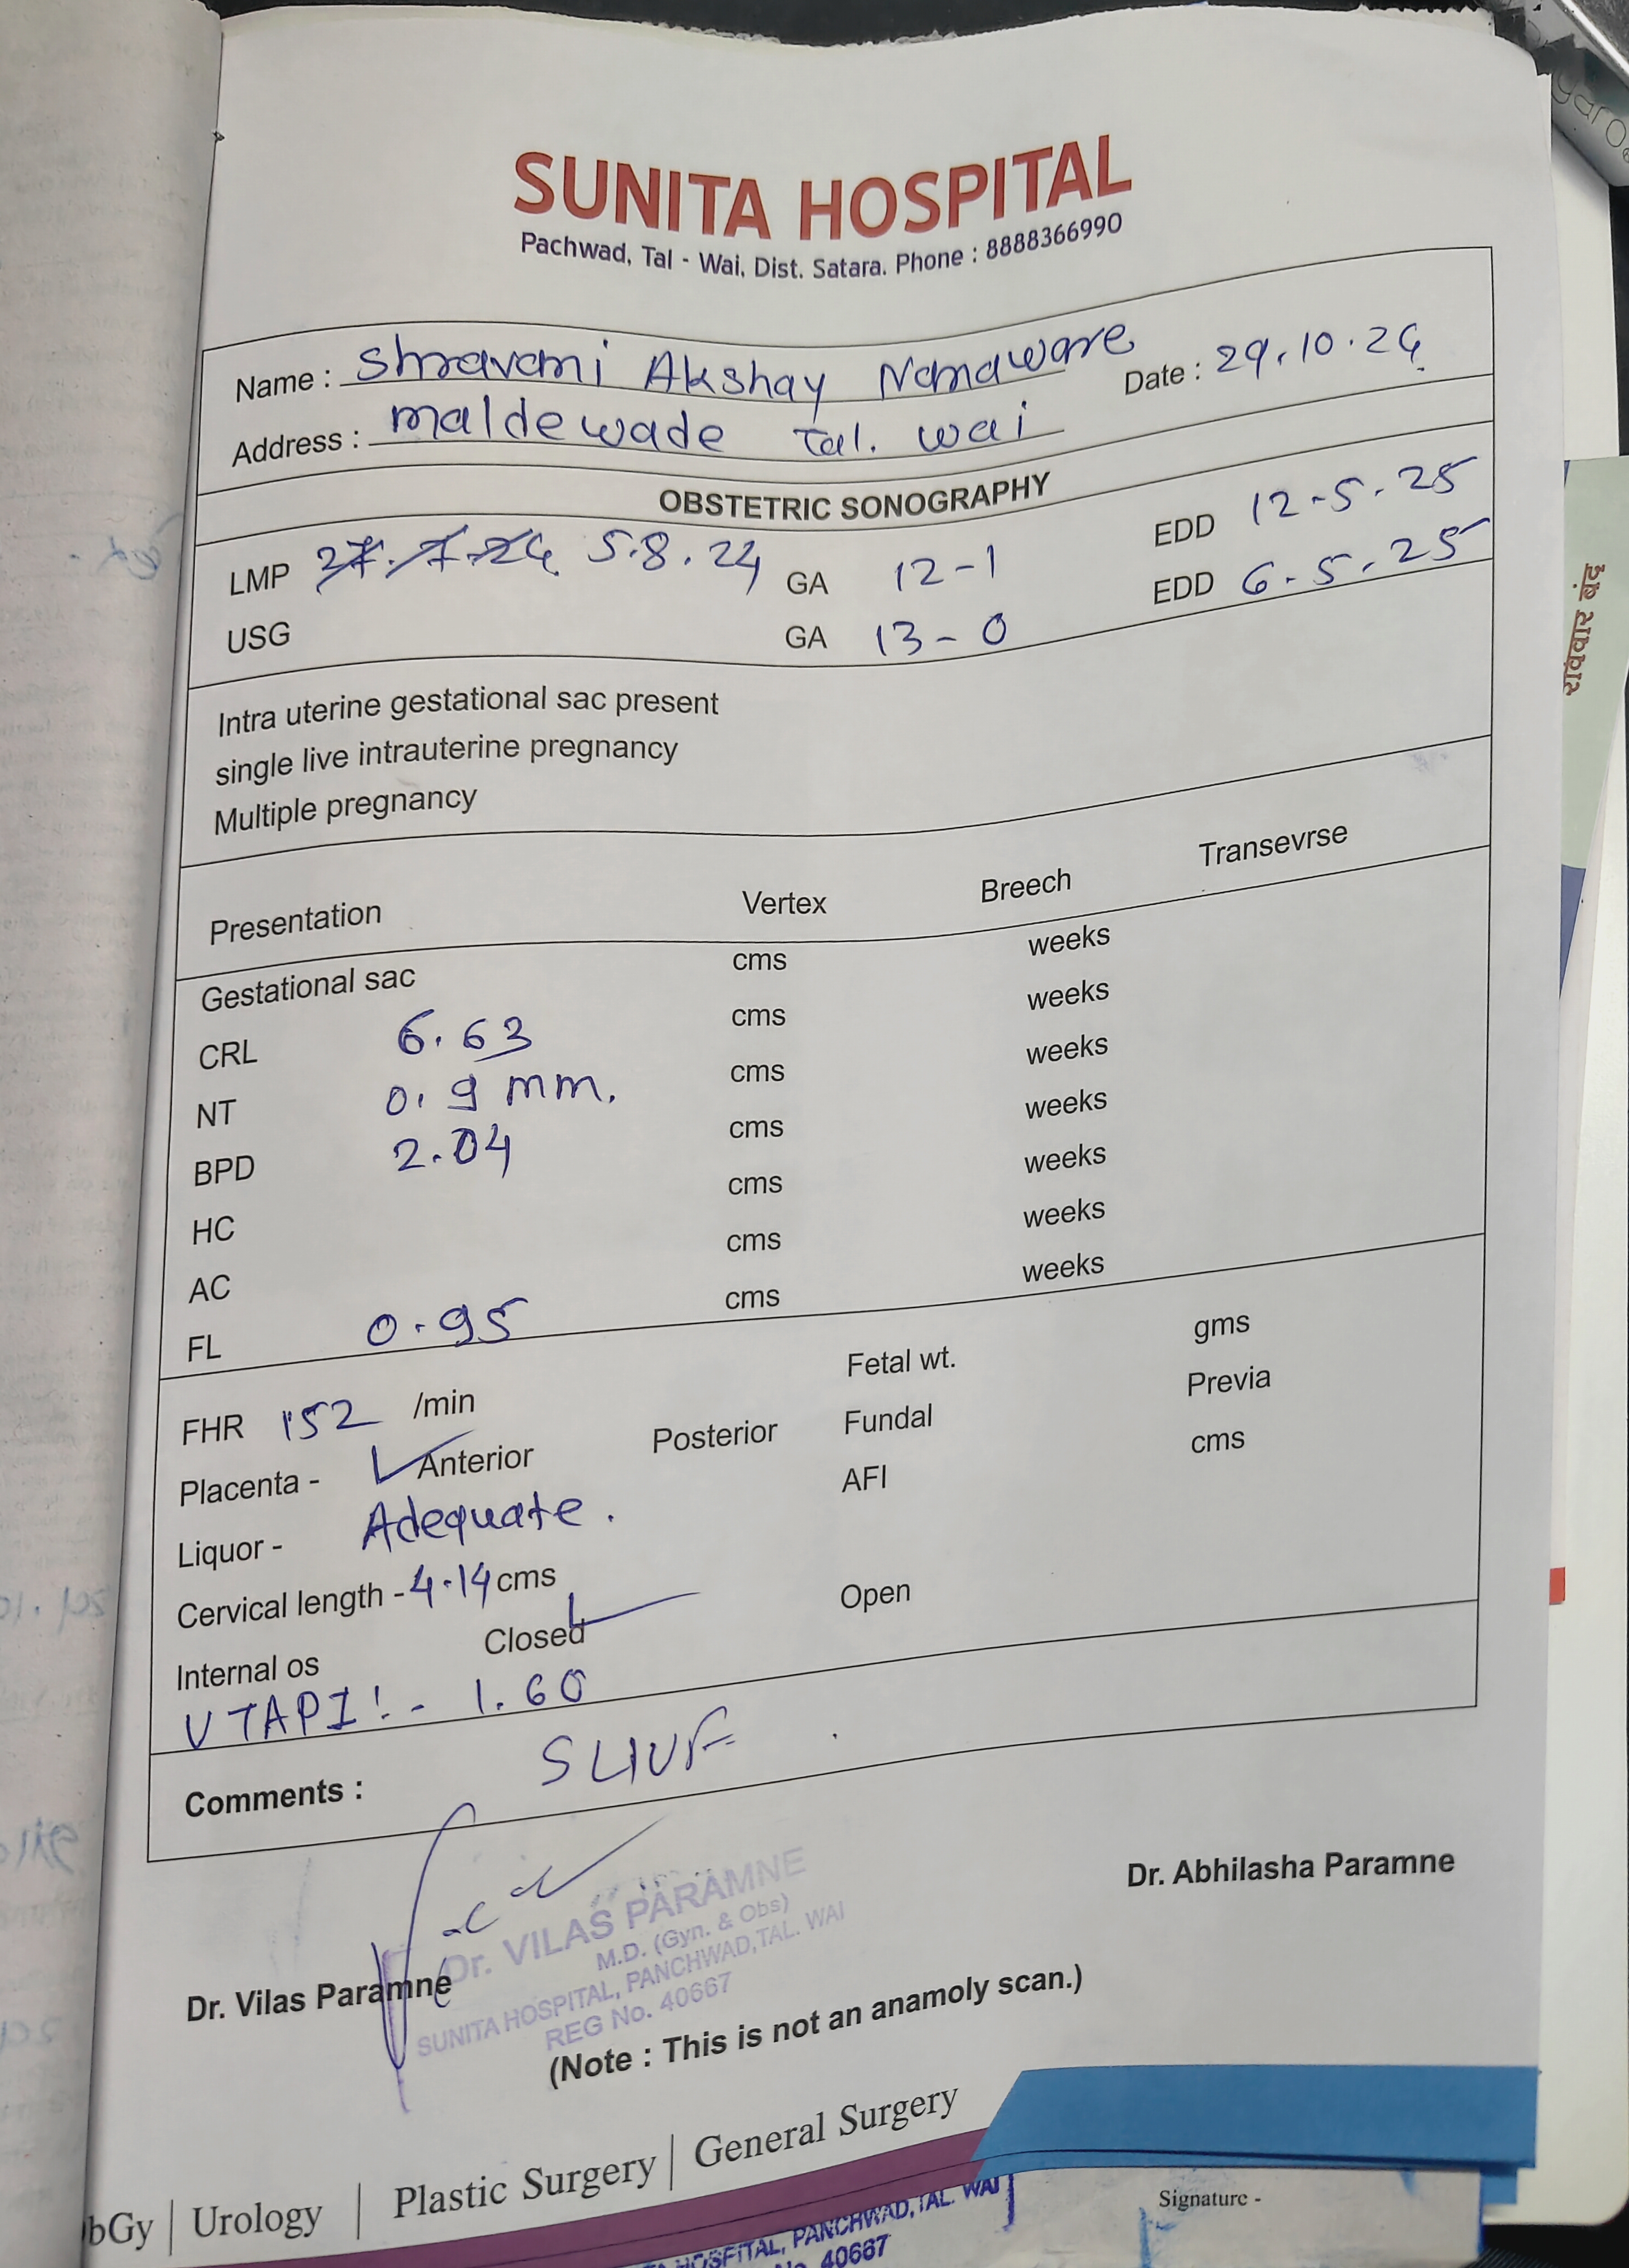 SUNITA HOSPITAL
Pachwad, Tal - Wai, Dist. Satara. Phone : 8888366990
Name : Shravani Akshay Nanaware Date : 29.10.24
Address : maldewade Tal. wai
OBSTETRIC SONOGRAPHY
LMP 27.7.24 5.8.24 GA 12-1 EDD 12-5-25
USG GA 13-0 EDD 6-5-25
Intra uterine gestational sac present
single live intrauterine pregnancy
Multiple pregnancy
Presentation Vertex Breech Transevrse
Gestational sac cms weeks
CRL 6.63 cms weeks
NT 0.9 mm. cms weeks
BPD 2.04 cms weeks
HC cms weeks
AC cms weeks
FL 0.95 cms weeks
FHR 152 /min Fetal wt. gms
Placenta - Anterior Posterior Fundal Previa
Liquor - Adequate. AFI cms
Cervical length - 4.14 cms
Internal os Closed Open
UTAPI :- 1.60
Comments : SLIUF
Dr. Vilas Paramne Dr. Abhilasha Paramne
Dr. VILAS PARAMNE
M.D. (Gyn. & Obs)
SUNITA HOSPITAL, PANCHWAD, TAL. WAI
REG No. 40667
(Note : This is not an anamoly scan.)
bGy | Urology | Plastic Surgery | General Surgery
HOSPITAL, PANCHWAD, TAL. WAI
40667
Signature -
रविवार बंद